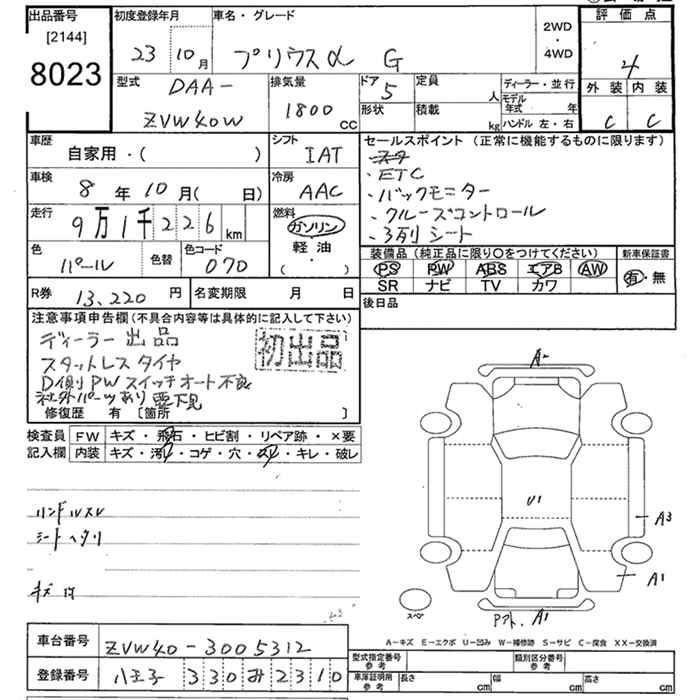 出品番号
[2144]
8023
初度登録年月
23 10月
車名・グレード
プリウスα G
2WD
・
4WD
評価点
4
外装 内装
C C
型式
DAA-
ZVW40W
排気量
1800 CC
ドア
5
定員
人
形状
積載
kg
ディーラー・並行
モデル年式 年
ハンドル 左・右
車歴
自家用・( )
シフト
IAT
車検
8年10月( 日)
冷房
AAC
走行
9万1千226km
燃料
ガソリン
軽油
( ・ )
色
パール
色替
色コード
070
R券
13,220円
名変期限 月 日
セールスポイント (正常に機能するものに限ります)
・ETC
・バックモニター
・クルーズコントロール
・3列シート
装備品 (純正品に限り○をつけてください)
PS PW ABS エアB AW
SR ナビ TV カワ
新車保証書
有・無
後日品
注意事項申告欄 (不具合内容等は具体的に記入して下さい)
ディーラー出品
初出品
スタットレスタイヤ
D側PWスイッチオート不良
社外パーツあり 要下見
修復歴 有 [箇所 ]
検査員 FW キズ・飛石・ヒビ割・リペア跡・×要
記入欄 内装 キズ・汚レ・コゲ・穴・スレ・キレ・破レ
ハンドルスレ
シートヘタリ
A-
U1
A3
A1
スペア
Pアト. A1
A-キズ E-エクボ U-凹み W-補修跡 S-サビ C-腐食 XX-交換済
車台番号 ZVW40-3005312
登録番号 八王子 330み2310
型式指定番号 参考
類別区分番号 参考
車庫証明用 参考 長さ cm 幅 cm 高さ cm